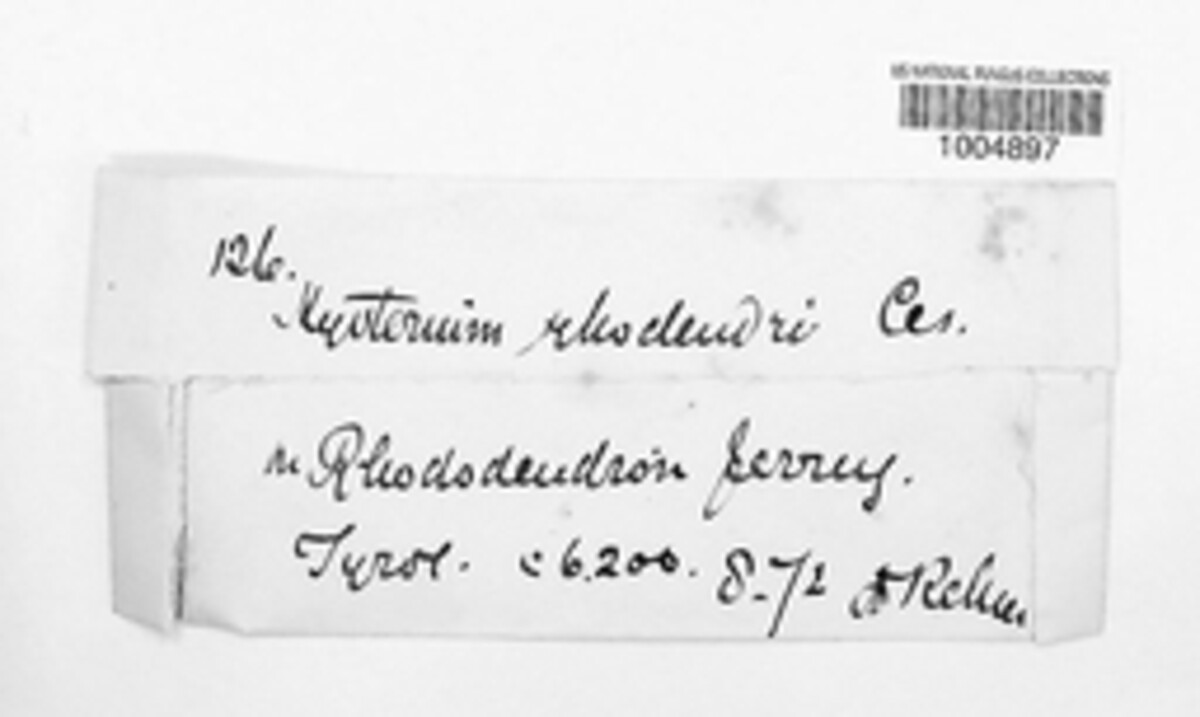 US NATIONAL FUNGUS COLLECTIONS
1004897
126.
rhodendri Ces.
Rhododendron ferrug.
Tyrol. c 6.200. 8.72 Rehm